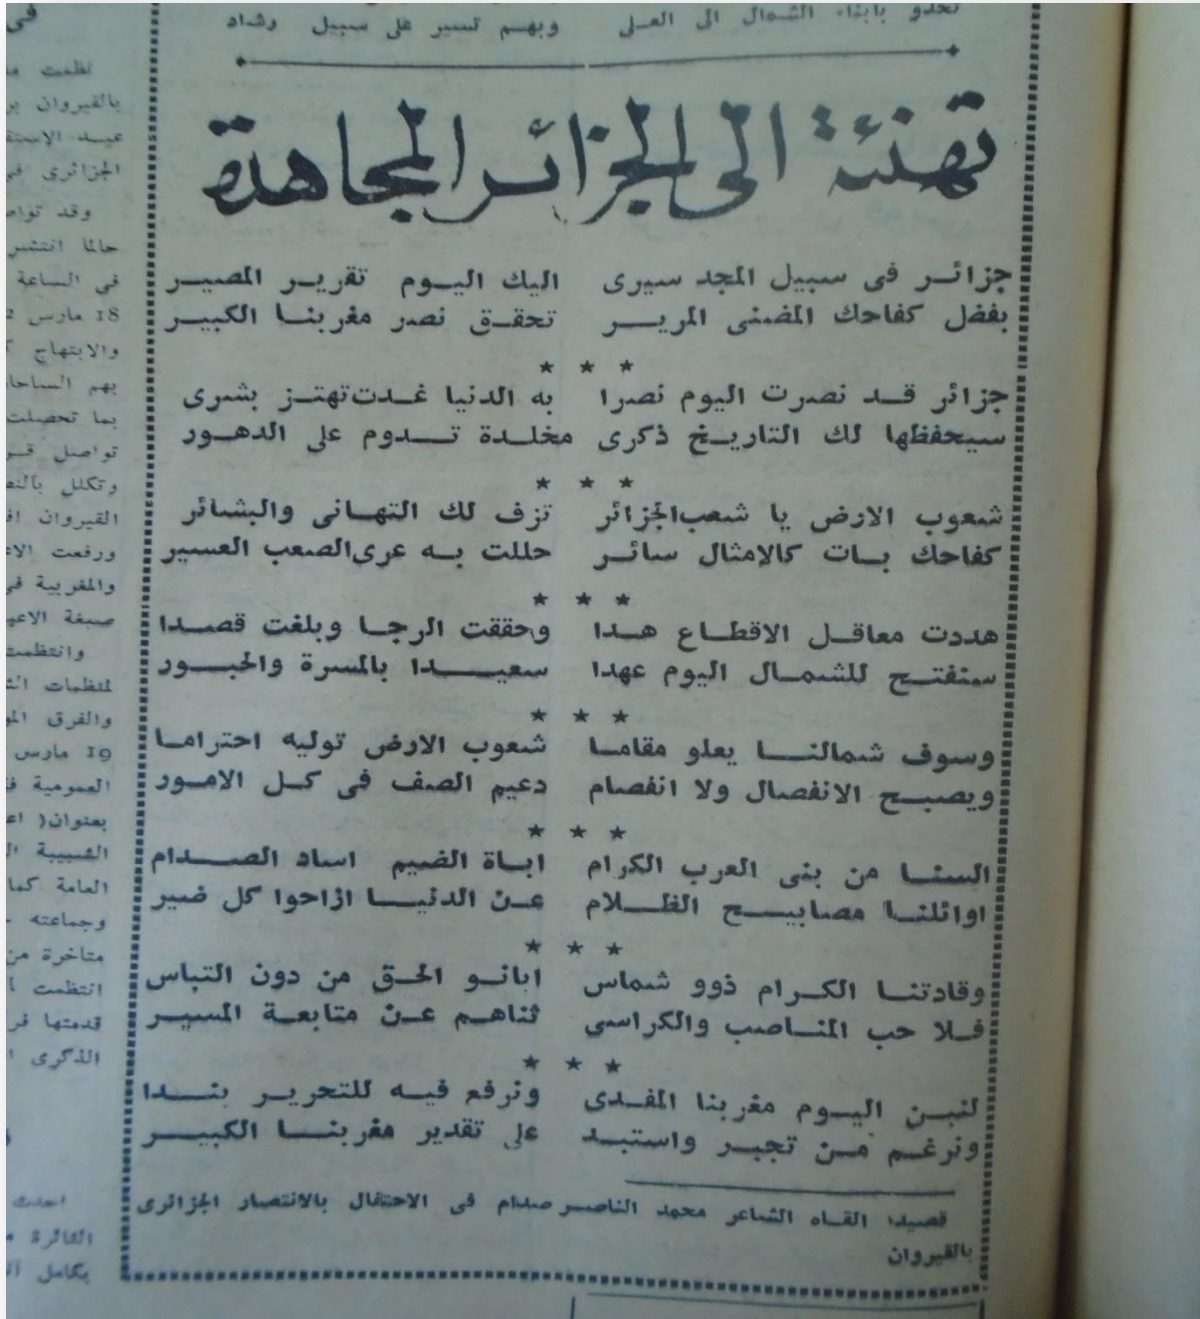 تحدو بأبناء الشمال الى العلى وبهم تسير على سبيل رشاد
تهنئة الى الجزائر المجاهدة
جزائر فى سبيل المجد سيرى اليك اليوم تقرير المصير
بفضل كفاحك المضنى المرير تحقق نصر مغربنا الكبير
★ ★ ★
جزائر قد نصرت اليوم نصرا به الدنيا غدت تهتز بشرى
سيحفظها لك التاريخ ذكرى مخلدة تدوم على الدهور
★ ★ ★
شعوب الارض يا شعب الجزائر تزف لك التهانى والبشائر
كفاحك بات كالامثال سائر حللت به عرى الصعب العسير
★ ★ ★
هددت معاقل الاقطاع هدا وحققت الرجا وبلغت قصدا
ستفتح للشمال اليوم عهدا سعيدا بالمسرة والحبور
★ ★ ★
وسوف شمالنا يعلو مقاما شعوب الارض توليه احتراما
ويصبح الانفصال ولا انفصام دعيم الصف فى كل الامور
★ ★ ★
السنا من بنى العرب الكرام اباة الضيم اساد الصدام
اوائلنا مصابيح الظلام عن الدنيا ازاحوا كل ضير
★ ★ ★
وقادتنا الكرام ذوو شماس ابانو الحق من دون التباس
فلا حب المناصب والكراسى ثناهم عن متابعة المسير
★ ★ ★
لنبن اليوم مغربنا المفدى ونرفع فيه للتحرير بندا
ونرغم من تجبر واستبد على تقدير مغربنا الكبير
قصيد القاه الشاعر محمد الناصر صدام فى الاحتفال بالانتصار الجزائرى
بالقيروان
فى
نظمت
بالقيروان
عيد
الجزائرى
وقد
حالما انتشر
فى الساعة
18 مارس
والابتهاج
بهم
بما تحصلت
تواصل
وتكلل
القيروان
ورفعت
والمغربية
صبغة
وانتظمت
لمنظمات
والفرق
19 مارس
العمومية
بعنوان(
الشبيبة
العامة كما
وجماعته
متاخرة من
انتظمت
قدمتها
الذكرى
احدث
الثائرة
بكامل